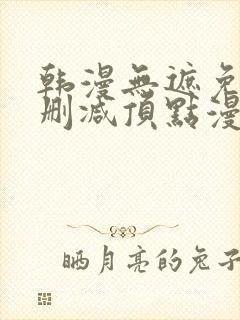 韩漫無遮免
删减頂點漫
晒月亮的兔子